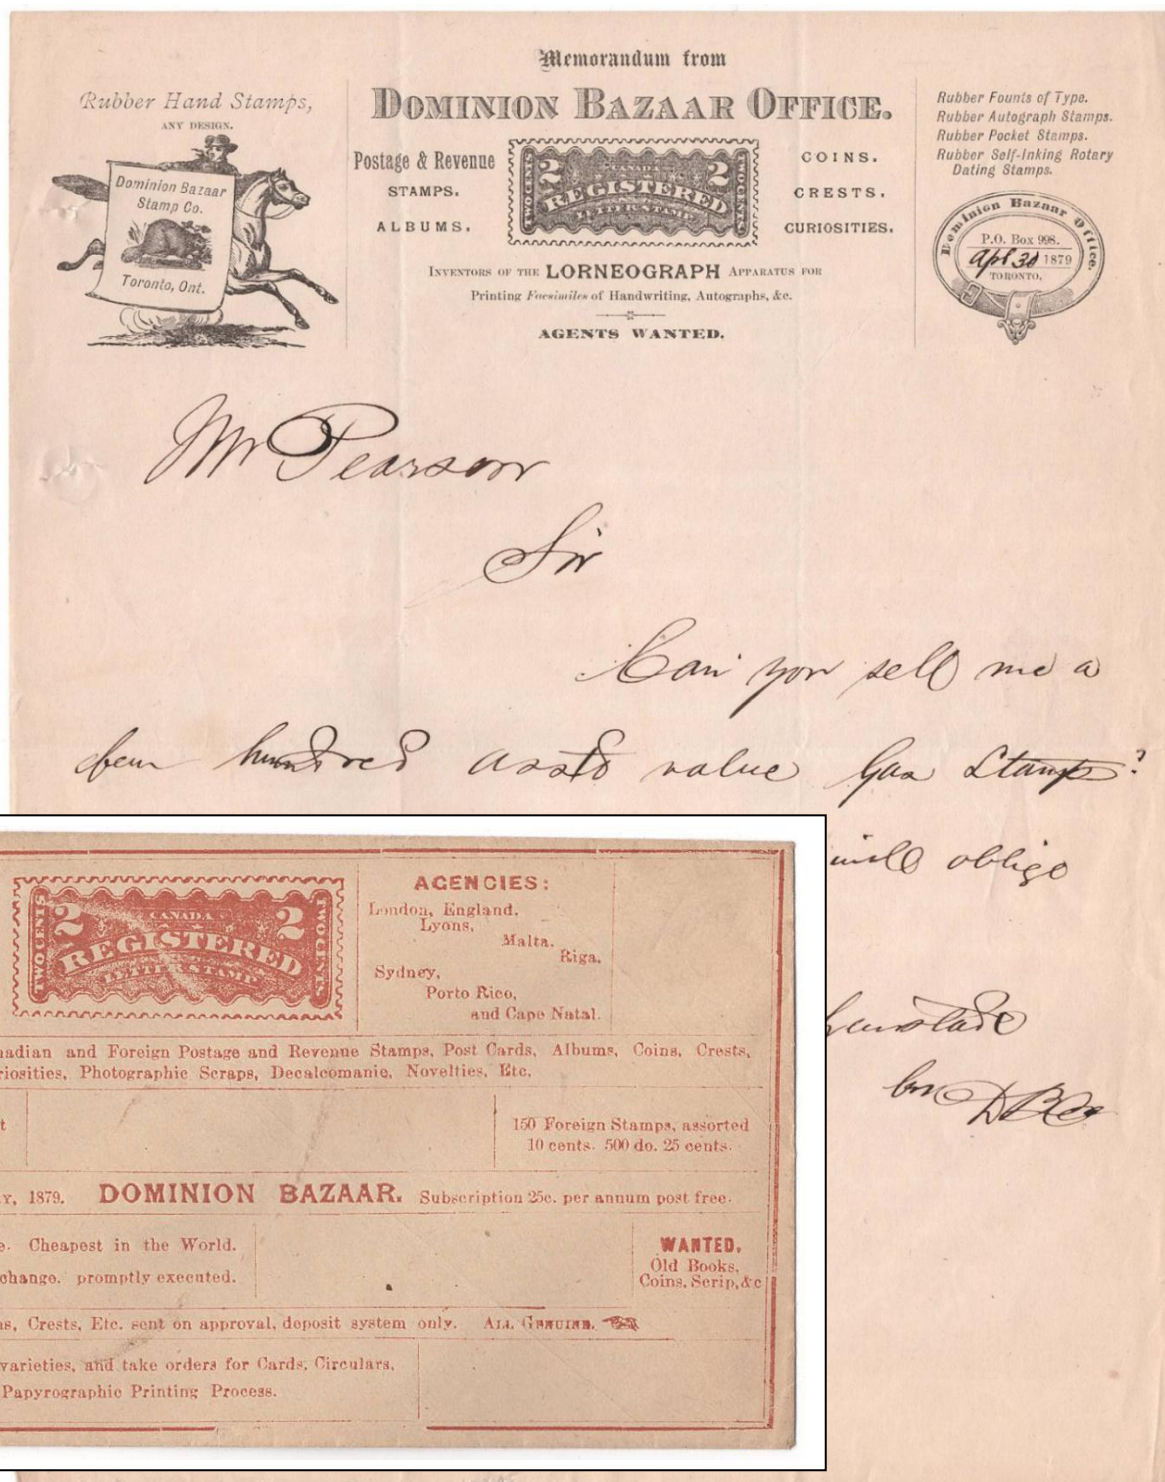 Memorandum from
DOMINION BAZAAR OFFICE.
Rubber Hand Stamps,
ANY DESIGN.
Dominion Bazaar
Stamp Co.
Toronto, Ont.
Postage & Revenue
STAMPS.
ALBUMS.
CANADA
2 2
TWO CENTS REGISTERED TWO CENTS
LETTER STAMP
COINS.
CRESTS.
CURIOSITIES.
INVENTORS OF THE LORNEOGRAPH APPARATUS FOR
Printing Facsimiles of Handwriting, Autographs, &c.
AGENTS WANTED.
Rubber Founts of Type.
Rubber Autograph Stamps.
Rubber Pocket Stamps.
Rubber Self-Inking Rotary
Dating Stamps.
Dominion Bazaar Office.
P.O. Box 998.
Apl 30 1879
TORONTO,
Mr Pearson
Sir
Can you sell me a
few hundred asstd value Gas Stamps?
will oblige
for DBCo
CANADA
2 2
TWO CENTS REGISTERED TWO CENTS
LETTER STAMP
AGENCIES:
London, England,
Lyons,
Malta,
Riga,
Sydney,
Porto Rico,
and Cape Natal.
nadian and Foreign Postage and Revenue Stamps, Post Cards, Albums, Coins, Crests,
riosities, Photographic Scraps, Decalcomanie, Novelties, Etc,
t
150 Foreign Stamps, assorted
10 cents. 500 do. 25 cents.
Y, 1879. DOMINION BAZAAR. Subscription 25c. per annum post free.
e. Cheapest in the World.
change. promptly executed.
WANTED,
Old Books,
Coins, Scrip, &c
ns, Crests, Etc. sent on approval, deposit system only. ALL GENUINE.
varieties, and take orders for Cards, Circulars,
Papyrographic Printing Process.